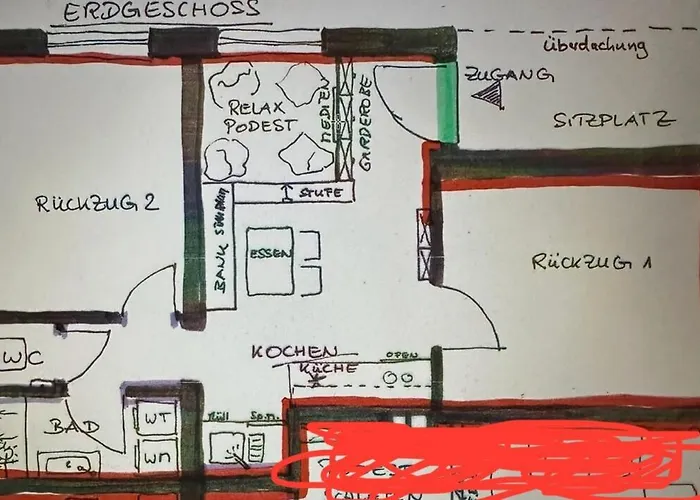 ERDGESCHOSS
Überdachung
ZUGANG
SITZPLATZ
RELAX
PODEST
MEDIEN
GARDEROBE
STUFE
RÜCKZUG 2
BANK
ESSEN
RÜCKZUG 1
KOCHEN
OPEN
KÜCHE
WC
BAD
WT
WM
Müll